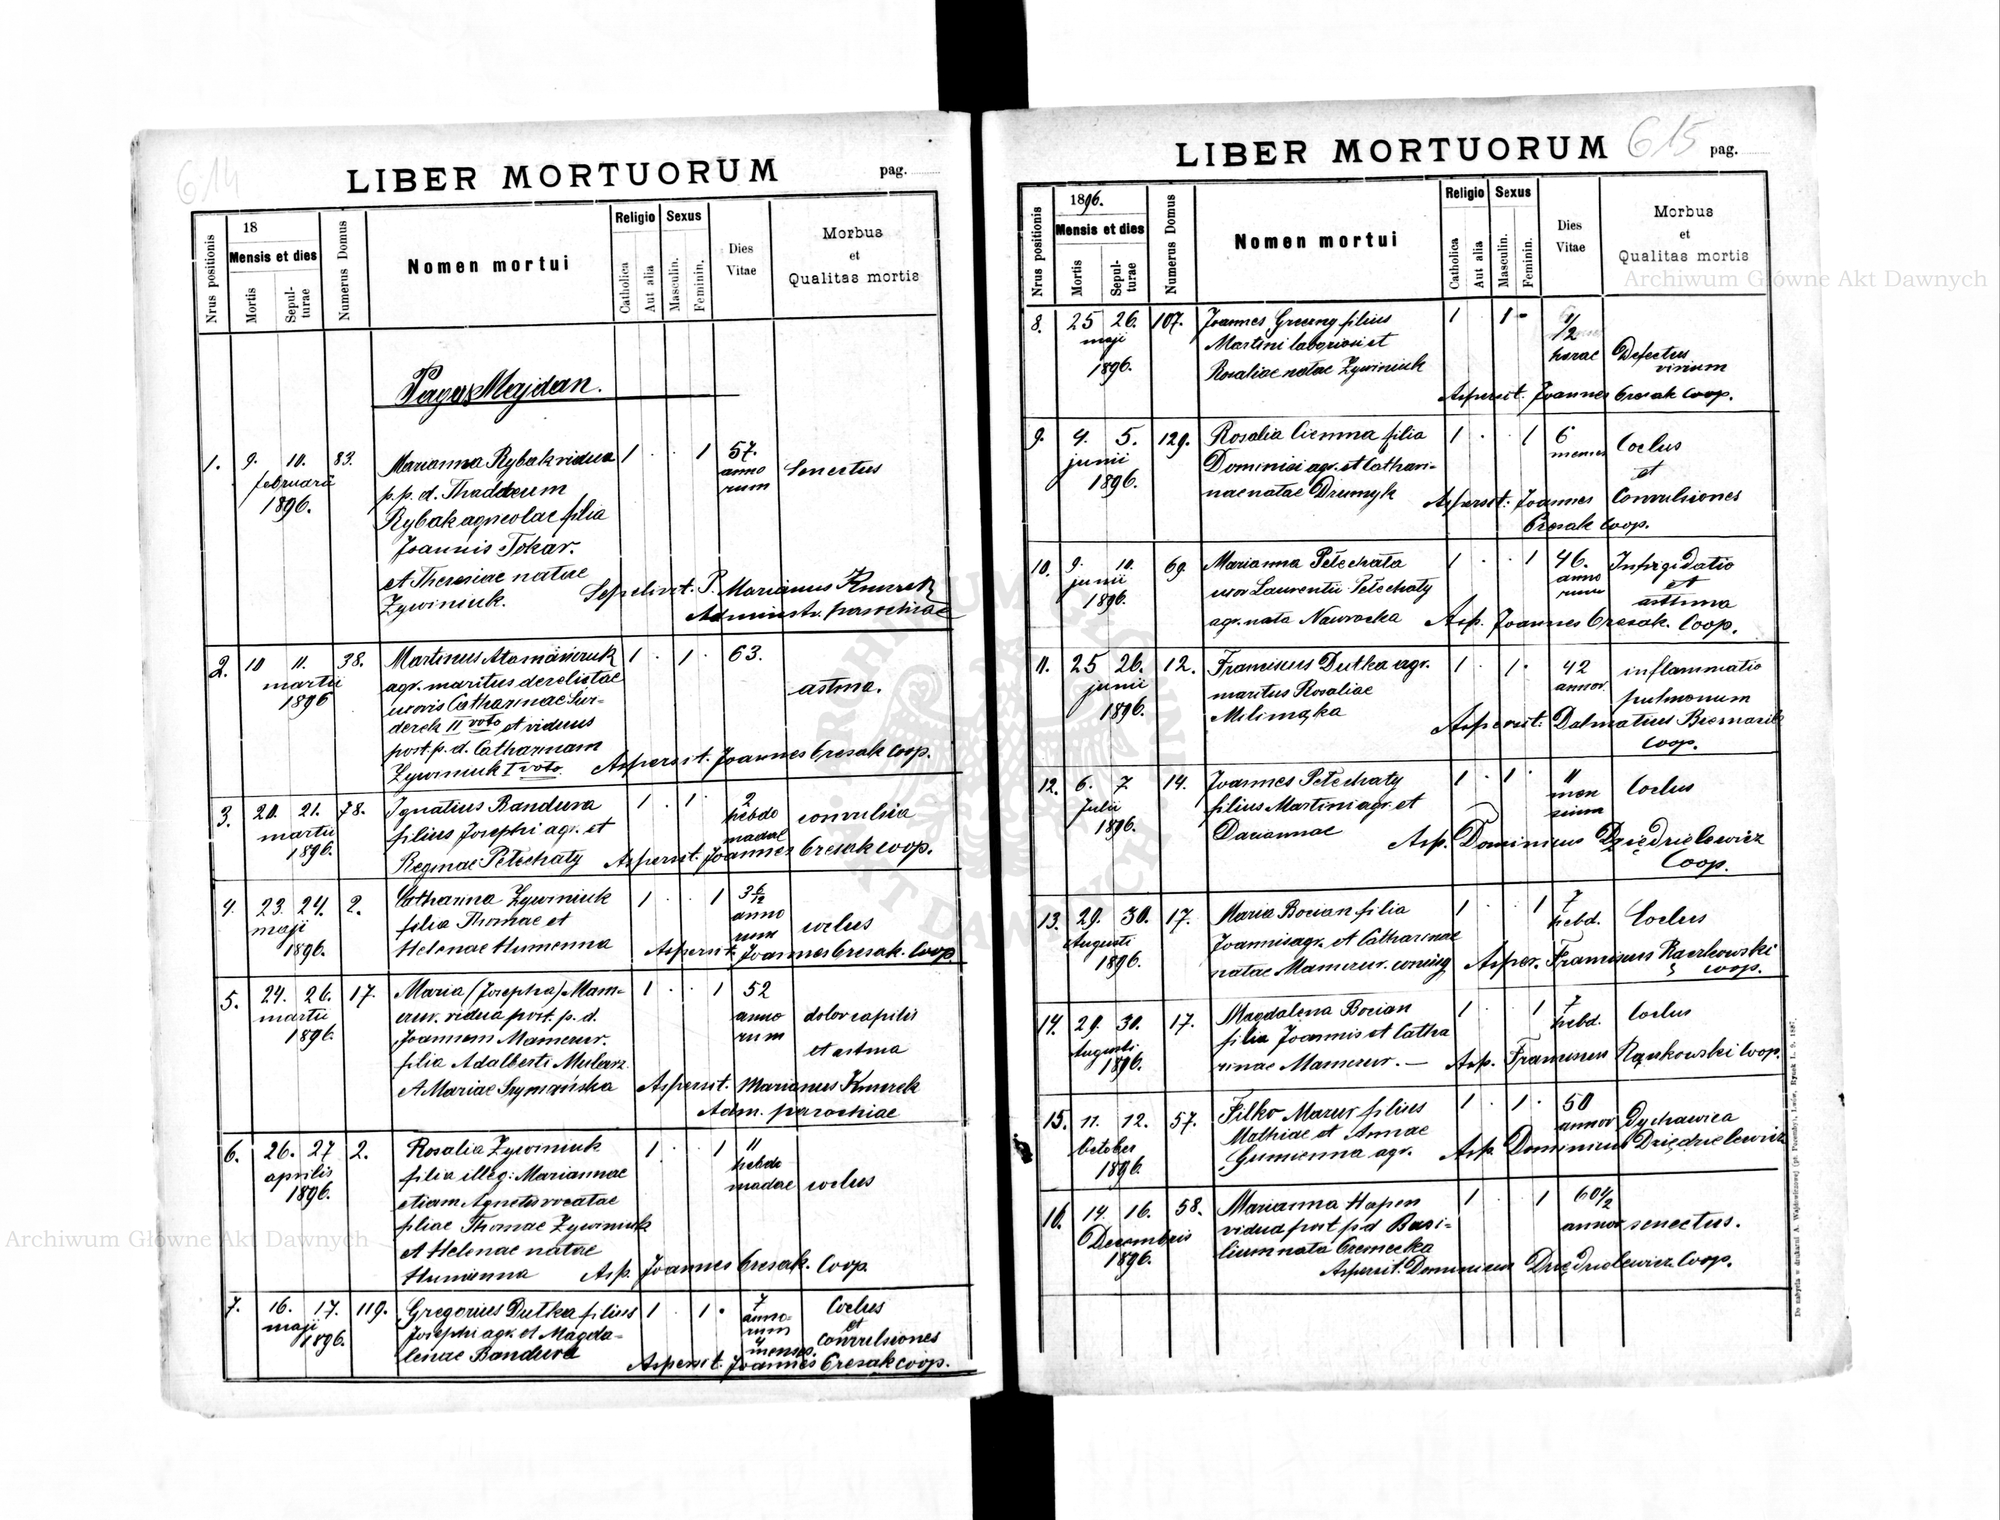 614
LIBER MORTUORUM
pag.
Nrus positionis
18
Mensis et dies
Mortis
Sepul-
turae
Numerus Domus
Nomen mortui
Religio
Catholica
Aut alia
Sexus
Masculin.
Feminin.
Dies
Vitae
Morbus
et
Qualitas mortis
Pagus Majdan.
1. 9. 10. 83. Marianna Rybak vidua 1 . . 1 57. Senectus
februarii p. p. d. Thaddeum anno
1896. Rybak agricolae filia rum
Joannis Tokar.
et Theresiae natae Sepelivit. P. Marianus
Żywiniuk. Administr. parochiae
2. 10 11. 38. Martinus 1 . 1 . 63. astma.
martii agr. maritus derelictae
1896 uxoris Catharinae Sw-
derek II voto et viduus
post. p. d. Catharinam
Żywiniuk I voto. Aspersit. Joannes Cresak Coop.
3. 20. 21. 78. Ignatius Bandura 1 . 1 . 2 convulsia
martii filius Josephi agr. et hebdo
1896. Reginae Petechaty madae
Aspersit. Joannes Cresak coop.
4. 23. 24. 2. Catharina Żywiniuk 1 . . 1 3 6/12 coclus
maji filia Thomae et anno
1896. Helenae Humenna rum
Aspersit. Joannes Cresak. Coop
5. 24. 26. 17. Maria (Josepha) Mam- 1 . . 1 52 dolor capitis
martii vidua post. p. d. anno et astma
1896. Joannem Mamczur. rum
filia Adalberti Mularz
et Mariae Szymańska Aspersit. Marianus
Adm. parochiae
6. 26. 27 2. Rosalia Żywiniuk 1 . . 1 11 coclus
aprilis filia illeg: Mariannae hebdo
1896. etiam Agnetis vocatae madae
filiae Thomae Żywiniuk
et Helenae natae
Humienna Asp. Joannes Cresak. Coop.
7. 16. 17. 119. Gregorius Dutka filius 1 . 1 . 7 Coclus
maji Josephi agr. et Magda- anno- et
1896. lenae Bandura rum Convulsiones
4 menses.
Aspersit. Joannes Cresak coop.
615
LIBER MORTUORUM
pag.
Nrus positionis
1896.
Mensis et dies
Mortis
Sepul-
turae
Numerus Domus
Nomen mortui
Religio
Catholica
Aut alia
Sexus
Masculin.
Feminin.
Dies
Vitae
Morbus
et
Qualitas mortis
8. 25 26. 107. Joannes filius 1 . 1 . 1/2 Defectus
maji Martini laboriosi et horae virium
1896. Rosaliae natae Żywiniuk
Aspersit. Joannes Cresak Coop.
9. 4. 5. 129. Rosalia Ciemna filia 1 . . 1 6 Coclus
junii Dominici agr. et Cathari- menses et
1896. nae natae Drumyk Convulsiones
Aspersit. Joannes
Cresak Coop.
10. 9. 10. 69 Marianna Petechata 1 . . 1 46. Infrigidatio
junii uxor Laurentii Petechaty anno et
1896. agr. nata Nawrocka rum asthma
Asp. Joannes Cresak. Coop.
11. 25 26. 12. Franciscus Dutka agr. 1 . 1 . 42 inflammatio
junii maritus Rosaliae annor. pulmonum
1896. Milimąka
Aspersit. Dalmatius
Coop.
12. 6. 7 14. Joannes Petechaty 1 . 1 . 11 Coclus
Julii filius Martini agr. et men
1896. Dariannae sium
Asp. Dominicus Dziędzielewicz
Coop.
13. 29. 30. 17. Maria Bocian filia 1 . . 1 7 Coclus
Augusti Joannis agr. et Catharinae hebd.
1896. natae Mamczur.
Asper. Franciscus Raczkowski
coop.
14. 29. 30. 17. Magdalena Bocian 1 . . 1 7 Coclus
Augusti filia Joannis et Catha hebd.
1896. rinae Mamczur. — Asp. Franciscus Rączkowski Coop.
15. 11. 12. 57. Filko Mazur filius 1 . 1 . 50 Dychawica
October Mathiae et Annae annor
1896. Gumienna agr. Asp. Dominicus Dziędzielewicz
16. 14. 16. 58. Marianna Hapen 1 . . 1 60 1/2 senectus.
Decembris vidua post p d Basi- annor
1896. lium nata Czemecka
Aspersit. Dominicus Dziędzielewicz Coop.
Archiwum Główne Akt Dawnych
Archiwum Główne Akt Dawnych